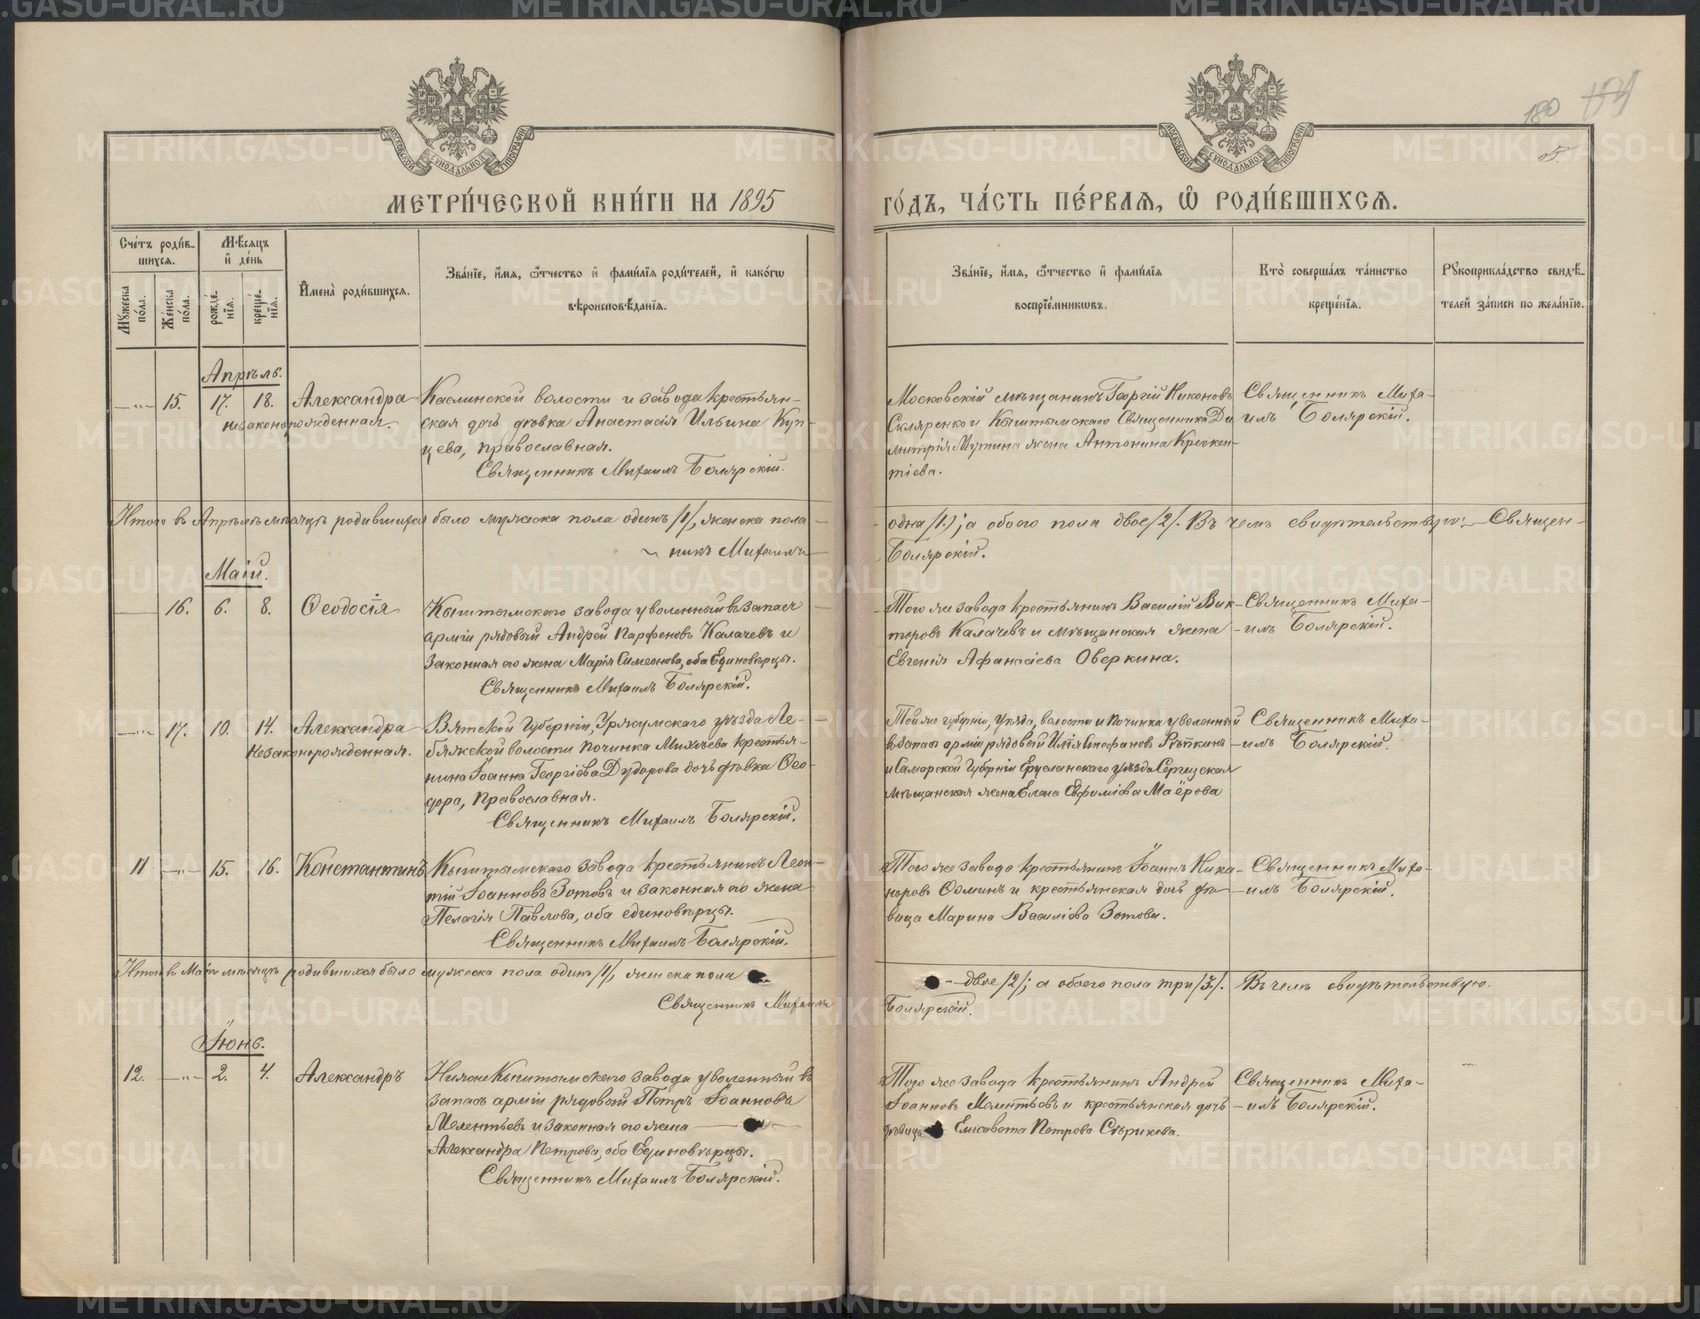 METRIKI.GASO-URAL.RU
180
МОСКОВСКОЙ СУНОДАЛЬНОЙ ТИПОГРАФІИ
МОСКОВСКОЙ СУНОДАЛЬНОЙ ТИПОГРАФІИ
МЕТРИ́ЧЕСКОЙ КНИ́ГИ НА 1895
ГО́ДЪ, ЧА́СТЬ ПЕ́РВАЯ, Ѽ РОДИ́ВШИХСЯ.
Сче́тъ роди́в-
шихся.
Мѣ́сяцъ
и҆ де́нь
Мꙋжеска по́ла.
Же́нска по́ла.
рожде́-нїя.
креще́-нїя.
И҆мена̀ роди́вшихся.
Зва́нїе, и҆́мя, ѻ҆́тчество и҆ фами́лїя роди́телей, и҆ како́гѡ
вѣроисповѣ́данїя.
Зва́нїе, и҆́мя, ѻ҆́тчество и҆ фами́лїя
воспрїе́мникѡвъ.
Кто̀ соверша́лъ та́инство
креще́нїя.
Рꙋкоприкла́дство свидѣ́-
телей за́писи по жела́нїю.
Апрѣль.
— „ — 15. 17. 18. Александра
незаконорожденная.
Каслинской волости и завода крестьян-
ская дочь дѣвка Анастасія Ильина Куп-
цева, православная.
Священникъ Михаилъ Болярскій.
Московскій мѣщанинъ Георгій Никоновъ
Скляренко и Кыштымскаго Священника Ди-
митрія жена Антонина
Священникъ Миха-
илъ Болярскій.
Итого въ Апрѣлѣ мѣсяцѣ родившихся было мужеска пола одинъ /1/, женска пола
одна /1/; а обоего пола двое /2/. Въ чемъ свидѣтельствую: Священ-
никъ Михаилъ
Болярскій.
Маій.
16. 6. 8. Ѳеодосія
Кыштымскаго завода уволенный въ запасъ
арміи рядовый Андрей Парфеновъ Калачевъ и
законная его жена Марія Симеонова, оба Единовѣрцы.
Священникъ Михаилъ Болярскій.
Того же завода крестьянинъ Василій Вик-
торовъ Калачевъ и мѣщанская жена
Евгенія Афанасіева Оверкина.
Священникъ Миха-
илъ Болярскій.
— „ — 17. 10. 14. Александра
незаконорожденная.
Вятской Губерніи, Уржумскаго уѣзда Ле-
бяжской волости починка Михѣева крестья-
нина Іоанна Георгіева Дудорова дочь дѣвка Ѳео-
дора, православная.
Священникъ Михаилъ Болярскій.
Той же губерніи, уѣзда, волости и починка уволенный
въ запасъ арміи рядовый Илія Стефановъ Рѣпкинъ
и Самарской Губерніи уѣзда
мѣщанская жена Елена Евфиміева Маёрова
Священникъ Миха-
илъ Болярскій.
11 — „ — 15. 16. Константинъ
Кыштымскаго завода крестьянинъ Леон-
тій Іоанновъ Зотовъ и законная его жена
Пелагія Павлова, оба единовѣрцы.
Священникъ Михаилъ Болярскій.
Того же завода крестьянинъ Іоаннъ Ника-
норовъ и крестьянская дочь дѣ-
вица Марина Василіева Зотова.
Священникъ Миха-
илъ Болярскій.
Итого въ Маіѣ мѣсяцѣ родившихся было мужеска пола одинъ /1/, женска пола
— двое /2/; а обоего пола три /3/. Въ чемъ свидѣтельствую.
Священникъ Михаилъ
Болярскій.
Іюнь.
12. — „ — 2. 4. Александръ
Нижне Кыштымскаго завода уволенный въ
запасъ арміи рядовый Петръ Іоанновъ
Мелентьевъ и законная его жена
Александра Петрова, оба Единовѣрцы.
Священникъ Михаилъ Болярскій.
Того же завода крестьянинъ Андрей
Іоанновъ Мелентьевъ и крестьянская дочь
дѣвица Елисавета Петрова Стрижова.
Священникъ Миха-
илъ Болярскій.